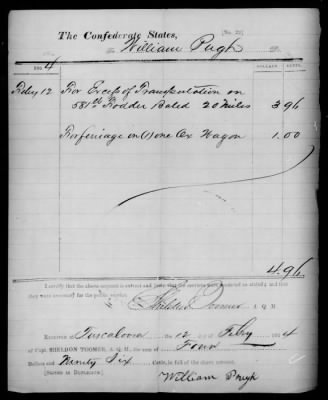 [No. 22]
The Confederate States,
To William Pugh, Dr.
DOLLARS CENTS
4
Feby 12 For Excess of Transportation on
581 lb Fodder Baled 20 Miles 3 96
For ferriage on (1) one Ox Wagon 1.00
4.96
I certify that the above account is correct and just; that the services were rendered as stated; and that
they were necessary for the public service.
Sheldon Toomer A. Q. M.
RECEIVED at Tuscaloosa the 12 day of Feby 1864
of Capt. SHELDON TOOMER, A. Q. M., the sum of Four
Dollars and Ninety Six Cents, in full of the above account.
[SIGNED IN DUPLICATE.]
William Pugh